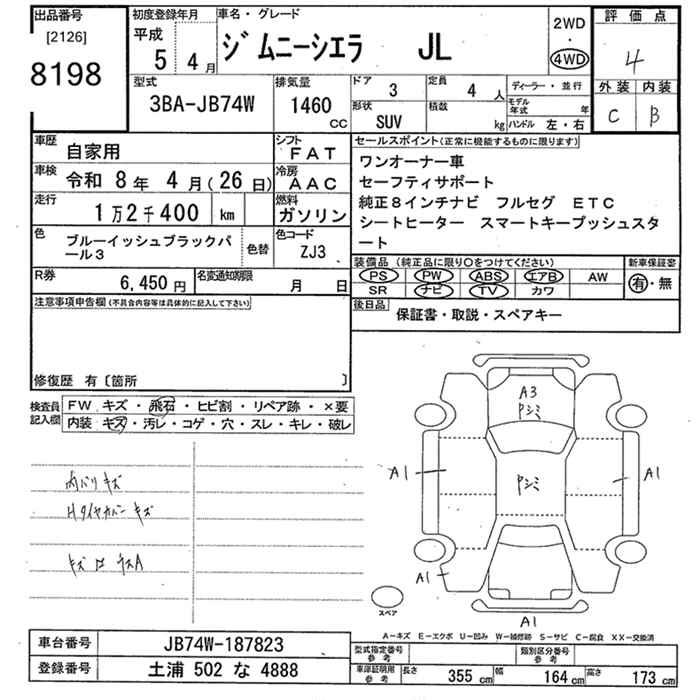 出品番号
[2126]
8198
初度登録年月
平成
5 4 月
車名・グレード
ジムニーシエラ JL
2WD
・
4WD
評価点
4
外装 内装
C B
型式
3BA-JB74W
排気量
1460
CC
ドア 3
定員 4 人
形状
SUV
積数
kg
ディーラー・並行
モデル年式 年
ハンドル 左・右
車歴 自家用
シフト FAT
車検 令和 8年 4月(26日)
冷房 AAC
走行 1万2千400 km
燃料 ガソリン
色 ブルーイッシュブラックパール3
色替
色コード ZJ3
R券 6,450円
名変通知期限 月 日
セールスポイント(正常に機能するものに限ります)
ワンオーナー車
セーフティサポート
純正8インチナビ フルセグ ETC
シートヒーター スマートキープッシュスタ
ート
装備品(純正品に限り○をつけてください)
PS PW ABS エアB AW
SR ナビ TV カワ
新車保証書
有・無
後日品
保証書・取説・スペアキー
注意事項申告欄(不具合内容等は具体的に記入して下さい)
修復歴 有〔箇所 〕
検査員記入欄
FW キズ・飛石・ヒビ割・リペア跡・×要
内装 キズ・汚レ・コゲ・穴・スレ・キレ・破レ
内バリキズ
Hタイヤカバーキズ
A3
Pシミ
A1
Pシミ
A1
A1
A1
スペア
A−キズ E−エクボ U−凹み W−補修跡 S−サビ C−腐食 XX−交換済
車台番号 JB74W-187823
登録番号 土浦 502 な 4888
型式指定番号
参考
類別区分番号
参考
車庫証明用
参考
長さ 355 cm
幅 164 cm
高さ 173 cm